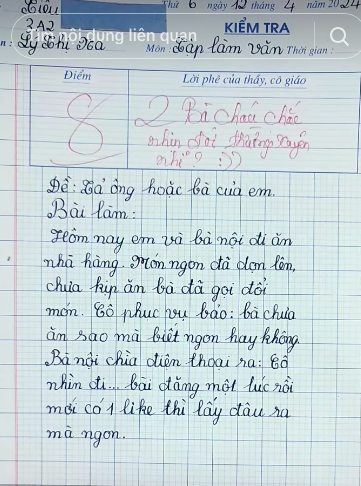 Thứ 6 ngày 12 tháng 4 năm 2024
3A2
KIỂM TRA
nội dung liên quan
Môn: Tập làm văn Thời gian:
Điểm
Lời phê của thầy, cô giáo
8
2 Bà cháu chắc
nhịn đói thường xuyên
nhỉ? :))
Đề: Tả ông hoặc bà của em.
Bài làm:
Hôm nay em và bà nội đi ăn
nhà hàng. Món ngon đã dọn lên,
chưa kịp ăn bà đã gọi đổi
món. Cô phục vụ bảo: bà chưa
ăn sao mà biết ngon hay không.
Bà nội chìa điện thoại ra: Cô
nhìn đi... bài đăng một lúc rồi
mới có 1 like thì lấy đâu ra
mà ngon.